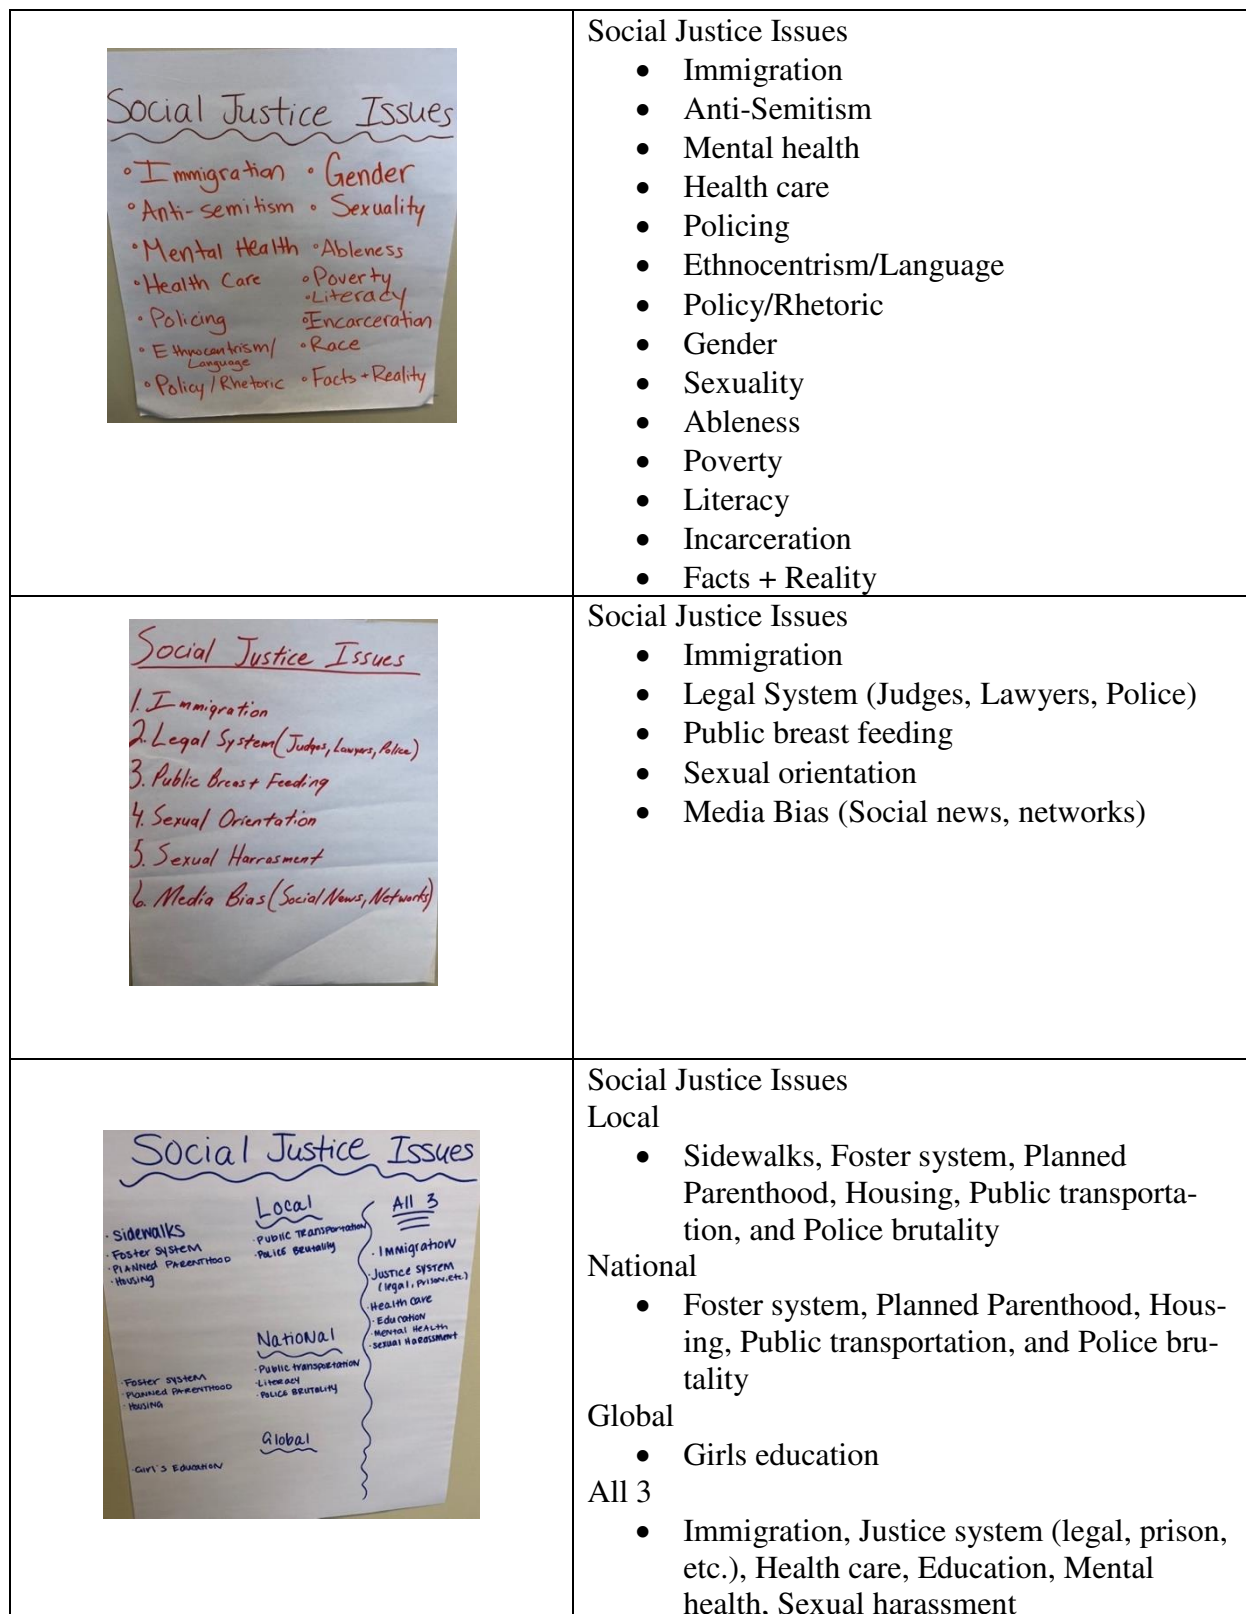 Social Justice Issues
• Immigration
• Anti-semitism
• Mental Health
• Health Care
• Policing
• Ethnocentrism/
Language
• Policy/Rhetoric
• Gender
• Sexuality
• Ableness
• Poverty
• Literacy
• Incarceration
• Race
• Facts + Reality
Social Justice Issues
• Immigration
• Anti-Semitism
• Mental health
• Health care
• Policing
• Ethnocentrism/Language
• Policy/Rhetoric
• Gender
• Sexuality
• Ableness
• Poverty
• Literacy
• Incarceration
• Facts + Reality
Social Justice Issues
1. Immigration
2. Legal System (Judges, Lawyers, Police)
3. Public Breast Feeding
4. Sexual Orientation
5. Sexual Harrasment
6. Media Bias (Social News, Networks)
Social Justice Issues
• Immigration
• Legal System (Judges, Lawyers, Police)
• Public breast feeding
• Sexual orientation
• Media Bias (Social news, networks)
Social Justice Issues
Local
• Sidewalks
• Foster System
• Planned Parenthood
• Housing
• Public Transportation
• Police Brutality
National
• Foster System
• Planned Parenthood
• Housing
• Public transportation
• Literacy
• Police Brutality
Global
• Girl's Education
All 3
• Immigration
• Justice System
(legal, prison, etc.)
• Health Care
• Education
• Mental Health
• Sexual Harassment
Social Justice Issues
Local
• Sidewalks, Foster system, Planned
Parenthood, Housing, Public transporta-
tion, and Police brutality
National
• Foster system, Planned Parenthood, Hous-
ing, Public transportation, and Police bru-
tality
Global
• Girls education
All 3
• Immigration, Justice system (legal, prison,
etc.), Health care, Education, Mental
health, Sexual harassment